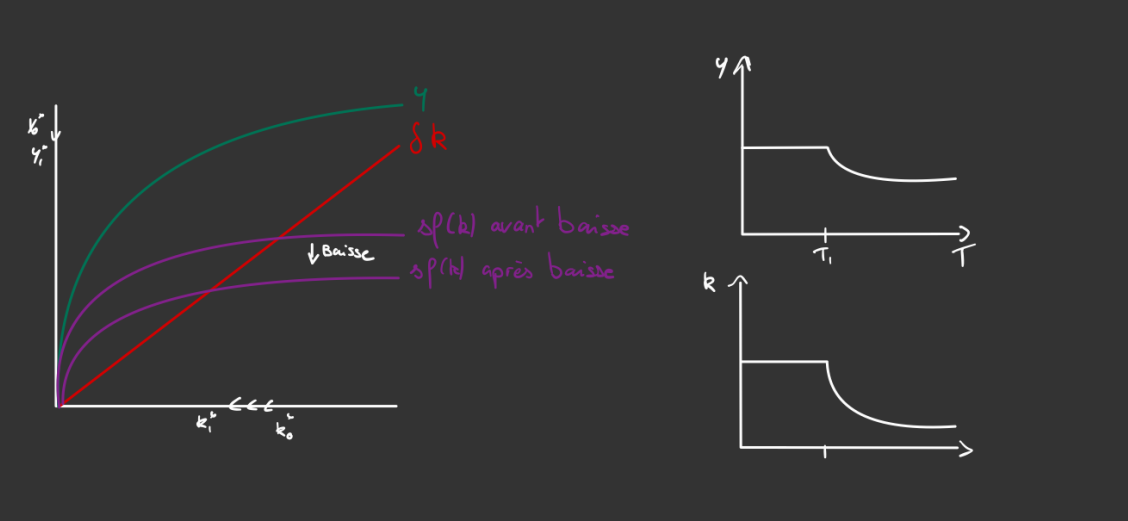 y
δk
y₀*
y₁*
sf(k) avant baisse
↓ Baisse
sf(k) après baisse
k₁*
k₀*
y
T₁
T
k